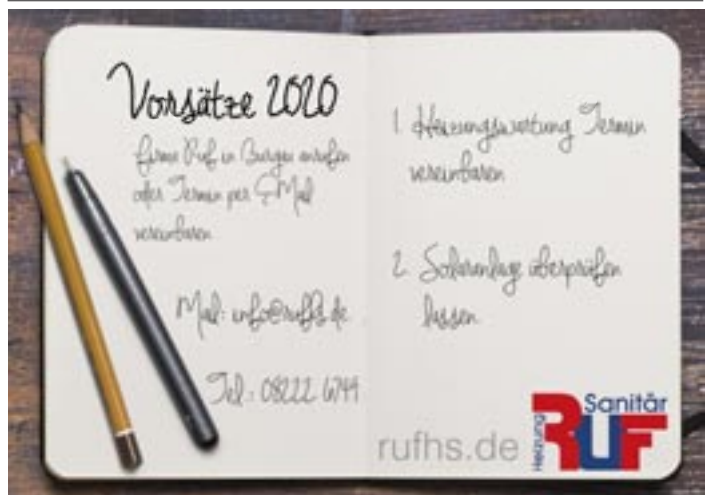 Vorsätze 2020
Firma Ruf in Burgau anrufen
oder Termin per E-Mail
vereinbaren
Mail: info@rufhs.de
Tel.: 08222 6744
1. Heizungswartung Termin
vereinbaren
2. Solaranlage überprüfen
lassen
rufhs.de
Heizung
RUF
Sanitär